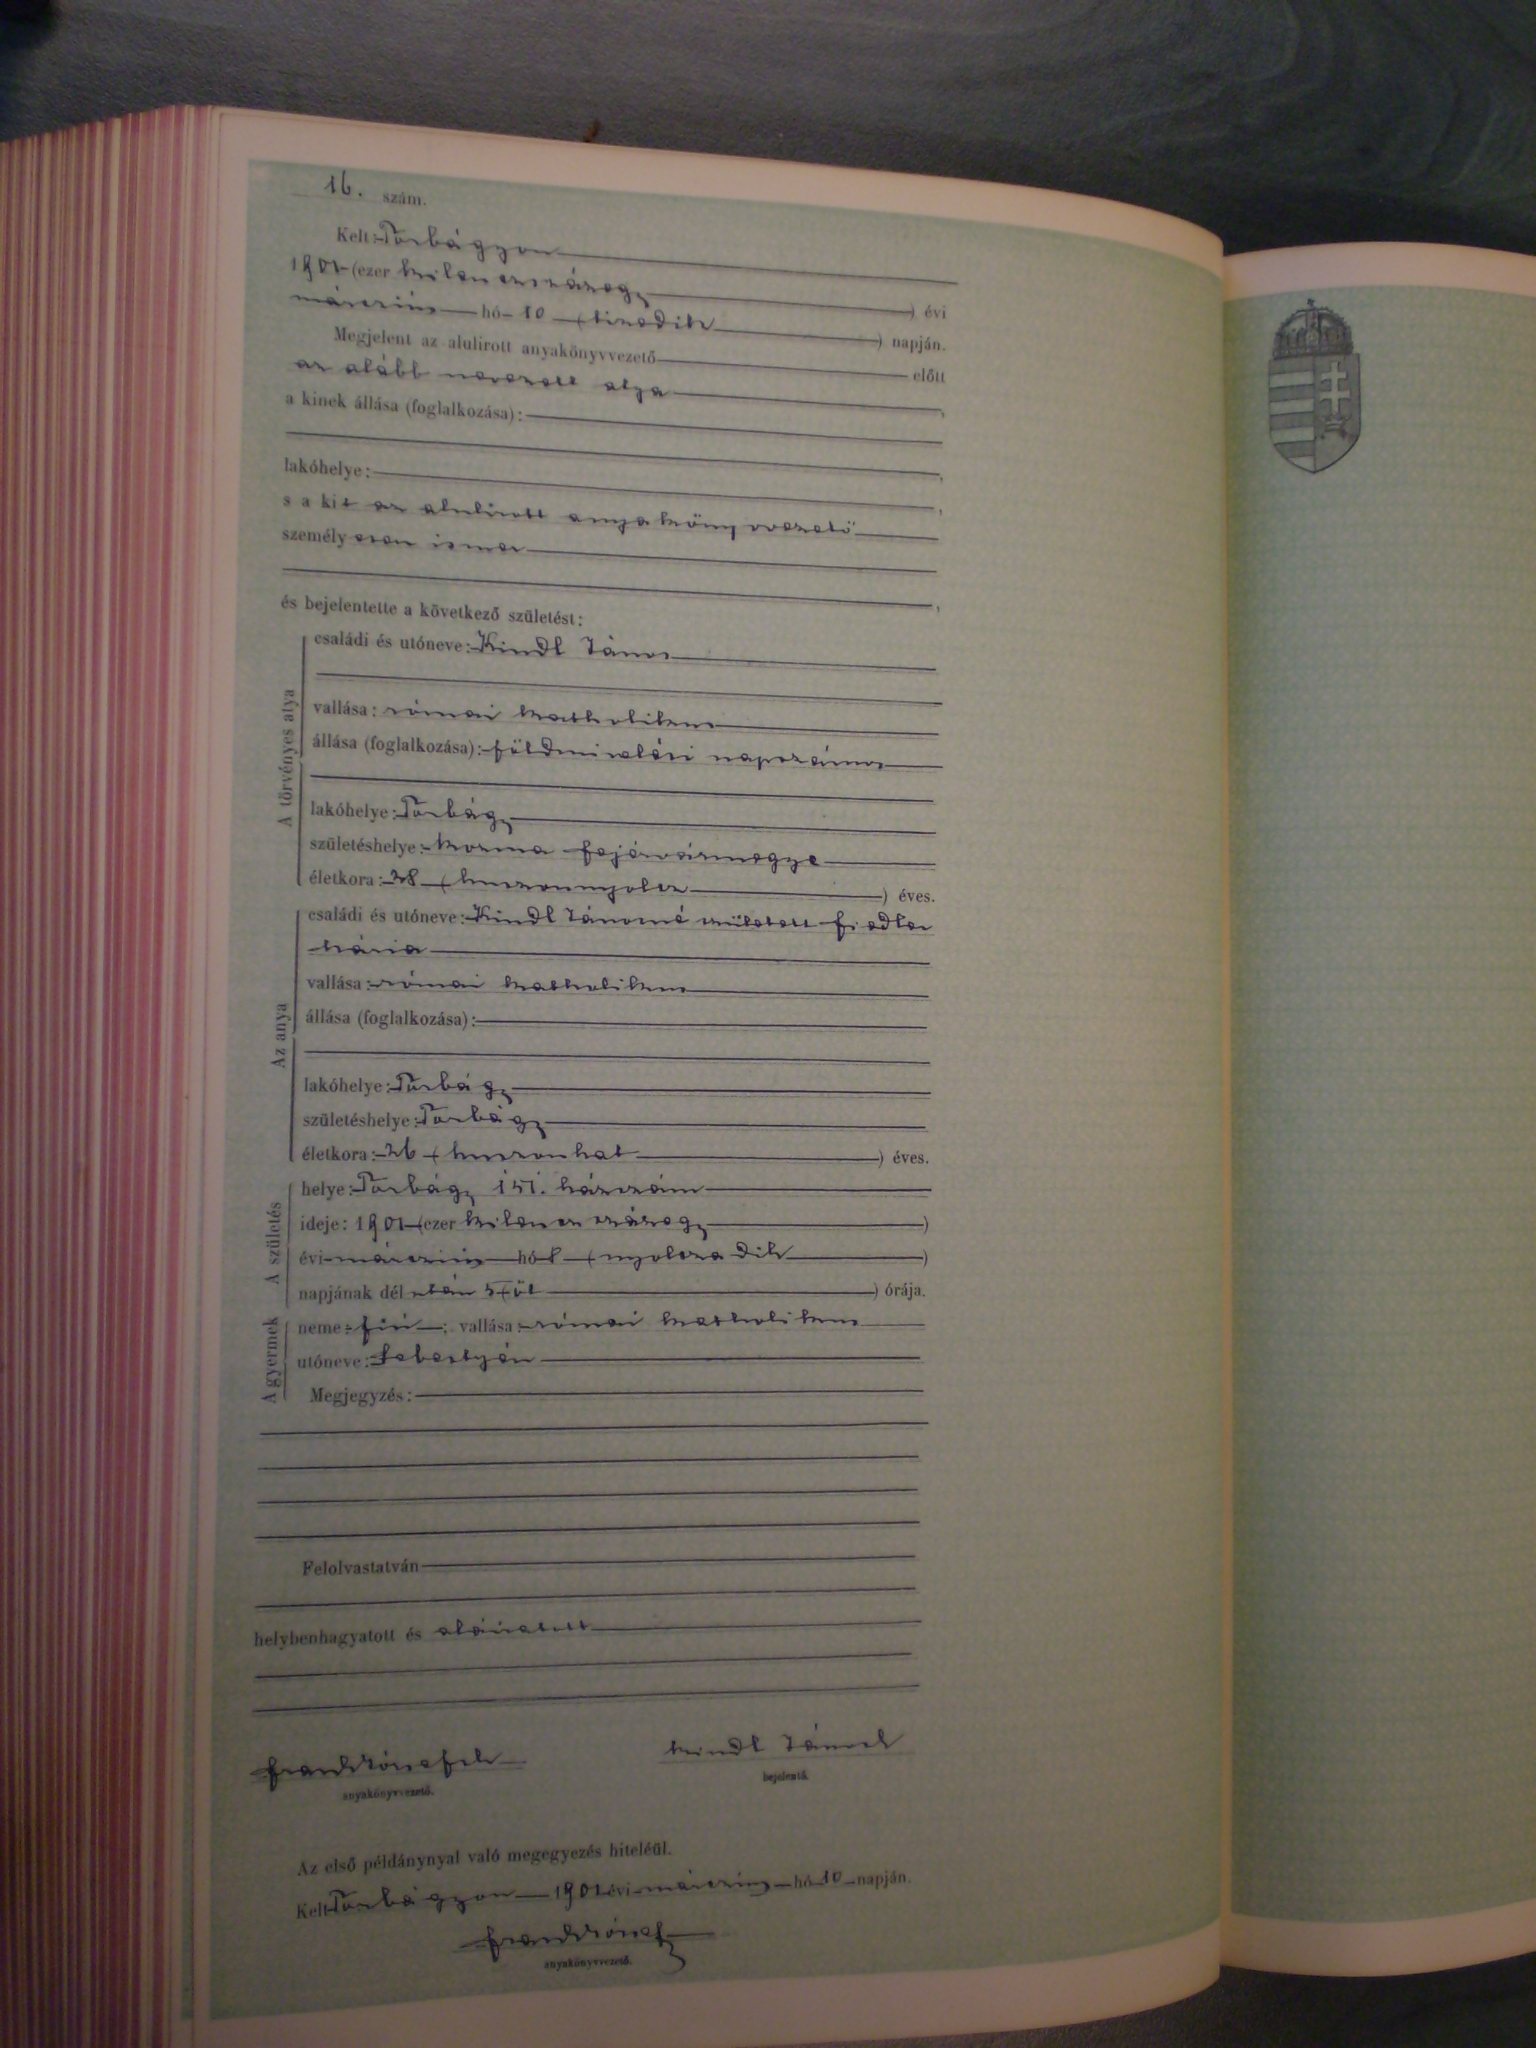 16. szám.
Kelt: Torbágyon
1901 (ezer kilenczszázegy) évi
márczius hó 10 (tizedik) napján.
Megjelent az alulirott anyakönyvvezető előtt
az alább nevezett atya,
a kinek állása (foglalkozása):
lakóhelye:
s a kit az alulirott anyakönyvvezető
személyesen ismer
és bejelentette a következő születést:
A törvényes atya
családi és utóneve: Kindl János
vallása: római katholikus
állása (foglalkozása): földmivelési napszámos
lakóhelye: Torbágy
születéshelye: Kozma fejérvármegye
életkora: 28 (huszonnyolcz) éves.
Az anya
családi és utóneve: Kindl Jánosné született Fiedler
Mária
vallása: római katholikus
állása (foglalkozása):
lakóhelye: Torbágy
születéshelye: Torbágy
életkora: 26 (huszonhat) éves.
A születés
helye: Torbágy 151. házszám
ideje: 1901 (ezer kilenczszázegy)
évi márczius hó 8 (nyolczadik)
napjának dél után 5 (öt) órája.
A gyermek
neme: fiú; vallása: római katholikus
utóneve: Sebestyén
Megjegyzés:
Felolvastatván
helybenhagyatott és aláiratott
anyakönyvvezető.
Kindl János
bejelentő.
Az első példánynyal való megegyezés hiteléül.
Kelt Torbágyon 1901 évi márczius hó 10 napján.
anyakönyvvezető.